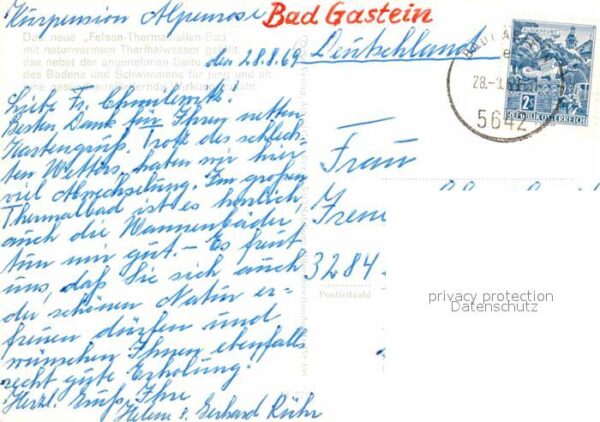 Kurpension Alpenrose
Bad Gastein
Das neue „Felsen-Thermalhallen-Bad"
mit naturwarmem Thermalwasser
den 28.8.69
das nebst der angenehmen Seite
des Badens und Schwimmens für jung und alt
eine
Liebe Fr.
Besten Dank für Ihren netten
Kartengruß. Trotz des schlech-
ten Wetters, haben wir hier
viel Abwechslung. Im großen
Thermalbad ist es herrlich,
auch die Wannenbäder
tun mir gut. – Es freut
uns, daß Sie sich auch
der schönen Natur er-
freuen dürfen und
wünschen Ihnen ebenfalls
recht gute Erholung!
Herzl. Grüße Ihre
Helene u. Gerhard Rühr
Deutschland
28.-
5642
2S
REPUBLIK ÖSTERREICH
Frau
Irene
3284
Postleitzahl
privacy protection
Datenschutz